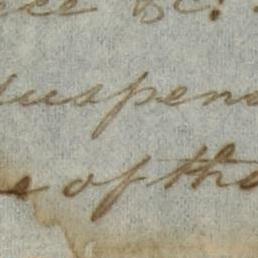 &c.
suspen
of the